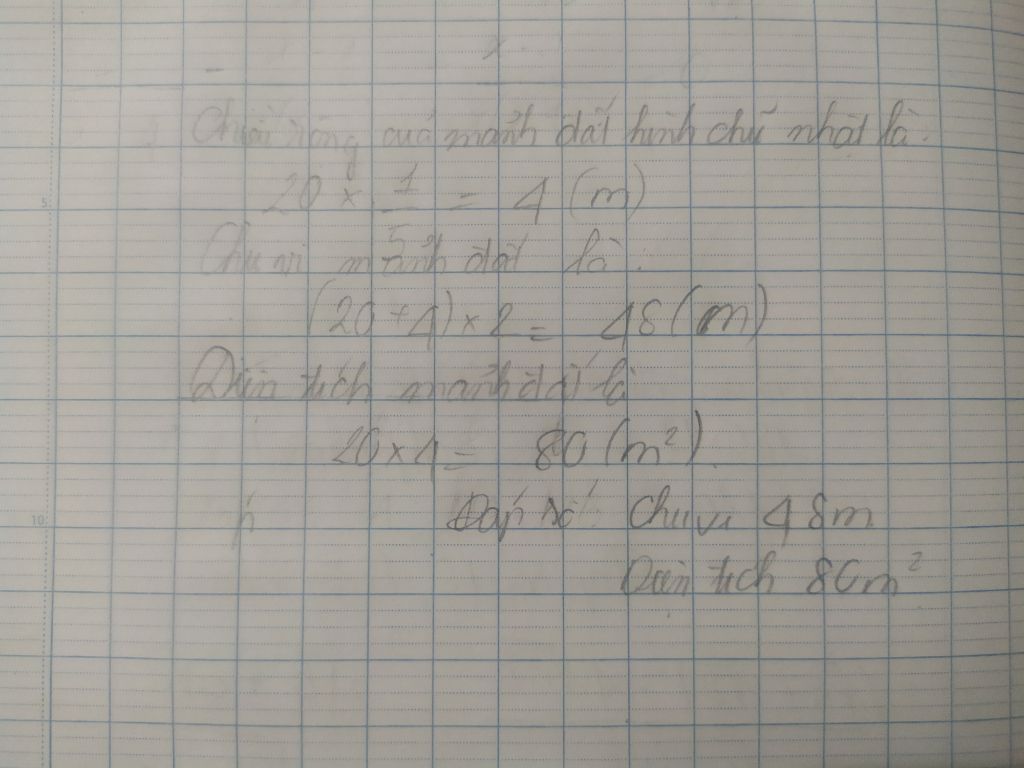 Chiều rộng của mảnh đất hình chữ nhật là:
20 × 1/5 = 4 (m)
Chu vi mảnh đất là:
(20 + 4) × 2 = 48 (m)
Diện tích mảnh đất là
20 × 4 = 80 (m²).
Đáp số: Chu vi 48m
Diện tích 80m²